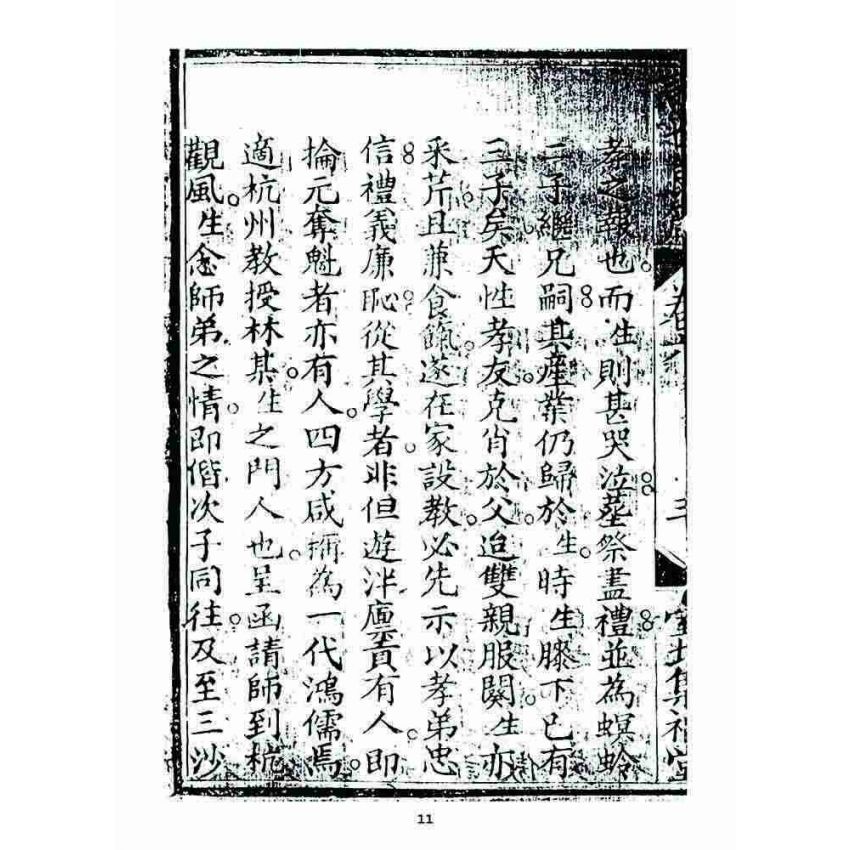 孝之報也。而生則甚哭泣。塟祭盡禮。並為螟蛉
二子繼兄嗣。其產業仍歸於生。時生膝下已有
三子矣。天性孝友。克肖於父。迨雙親服闋。生亦
采芹。且兼食餼。遂在家設教。必先示以孝弟忠
信。禮義廉恥。從其學者。非但遊泮廩貢有人。即
掄元奪魁者亦有人。四方咸稱為一代鴻儒焉。
適杭州教授林某。生之門人也。呈函請師到杭
觀風。生念師弟之情。即偕次子同往。及至三沙
11